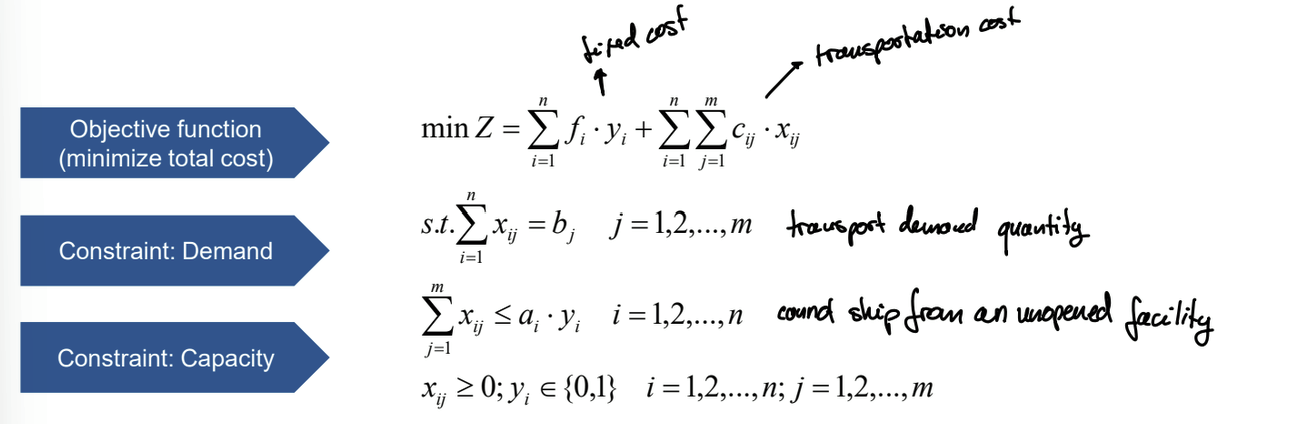 fixed cost
transportation cost
Objective function
(minimize total cost)
min Z = ∑_{i=1}^{n} f_i · y_i + ∑_{i=1}^{n} ∑_{j=1}^{m} c_{ij} · x_{ij}
Constraint: Demand
s.t. ∑_{i=1}^{n} x_{ij} = b_j j = 1,2,...,m transport demand quantity
∑_{j=1}^{m} x_{ij} ≤ a_i · y_i i = 1,2,...,n ship from an unopened facility
Constraint: Capacity
x_{ij} ≥ 0; y_i ∈ {0,1} i = 1,2,...,n; j = 1,2,...,m